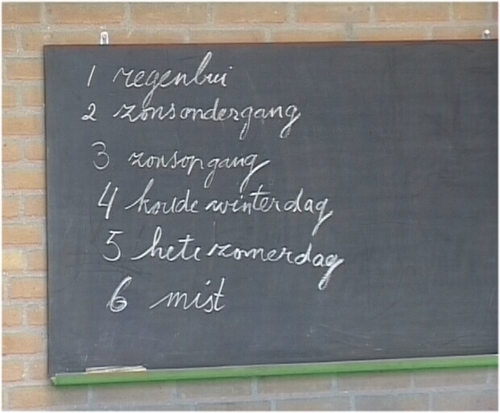 1 regenbui
2 zonsondergang
3 zonsopgang
4 koude winterdag
5 hete zomerdag
6 mist